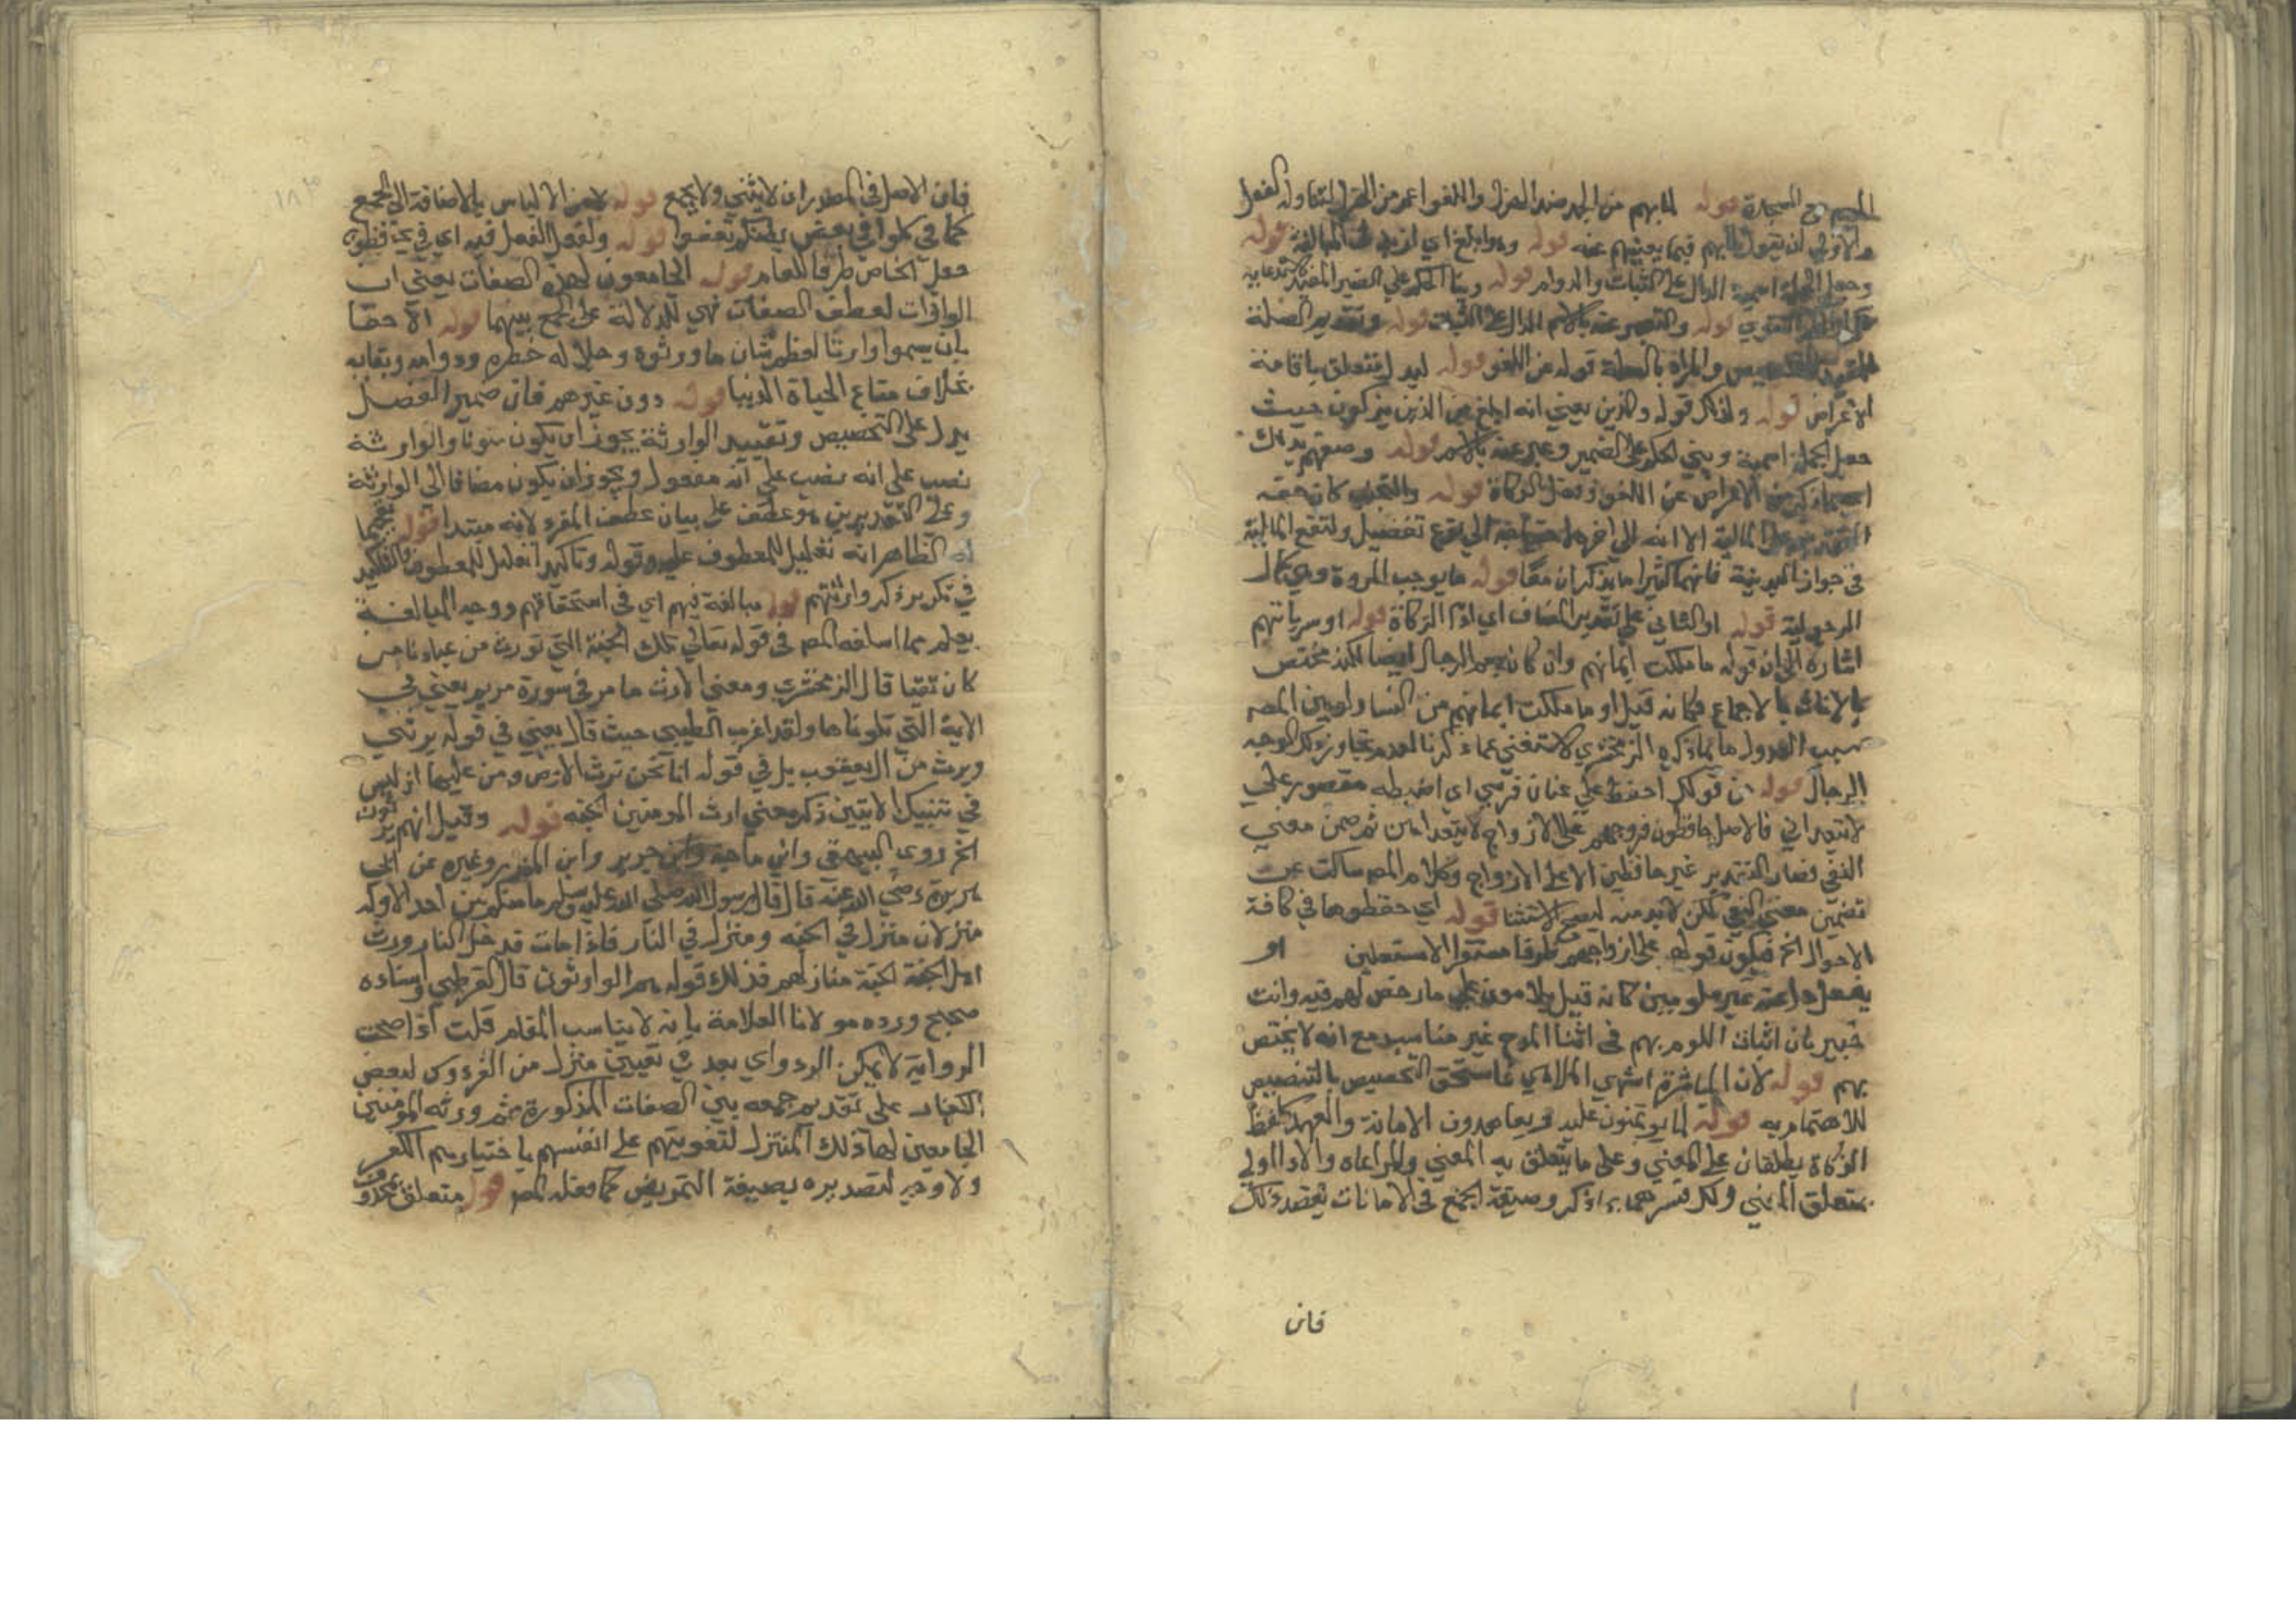 قوله لما بهم من الجد ضد الهزل واللغو اعم من الهزل لتناوله الفعل
والاولى ان يقول لما بهم فيما يعنيهم عنه قوله وهو ابلغ اي ازيد في المبالغة قوله
وجعل الجملة اسمية الدال على الثبات والدوام قوله وبنا الحكم على الضمير المفيد
قوله والتعبير عنه بالاسم الدال على الثبات قوله وتقديم الصلة
والمراد بالصلة قوله عن اللغو قوله ليدل فتتعلق باقامة
الاعراض قوله وكذلك قوله والذين يعني انه ابلغ من الذين يزكون حيث
جعل الجملة اسمية وبني الحكم على الضمير وعبر عنه بالاسم قوله وصفهم بذلك
الاعراض عن اللغو وفعل الزكاة قوله والتجنب كان حقه
المالية الا انه الى اخره لاحتياجه الى نوع تفصيل ولتقع المالية
في جوار البدنية فانهما كثيرا ما يذكران معا قوله ما يوجب المروة وهي كمال
الرجولية قوله او الثاني على تقدير المضاف اي اداء الزكاة قوله او سرياتهم
اشارة الى ان قوله ما ملكت ايمانهم وان كان يعم الرجال ايضا لكنه مختص
بالاناث بالاجماع فكانه قيل او ما ملكت ايمانهم من النسا ولم يبين المصـ
سبب العدول ما بما ذكره الزمخشري لاستغنى عما ذكرنا لعدم تجاوز ذلك الوجه
الرجال قوله من قولك احفظ علي عنان فرسي اي اضبطه مقصور علي
لا تتعداني فالاصل حافظون فروجهم على الازواج لا يتعداهن ثم ضمن معنى
النفي فصار التقدير غير حافظين الا على الازواج وكلام المصـ ساكت عن
تضمين معنى النفي لكن لا بد منه ليصح الاستثنا قوله اي حفظوها في كافة
الاحوال الخ فيكون قوله على ازواجهم ظرفا مستقرا لا مستعلين او
بفعل دل عنه غير ملومين كانه قيل يلامون على ما رخص لهم فيه وانت
خبير بان اثبات اللوم بهم في اثنا المدح غير مناسب مع انه لا يختص
بهم قوله لان المباشرة اشهى الملاهي فاستحق التخصيص بالتنصيص
للاهتمام به قوله لما يؤتمنون عليه ويعاهدون الامانة والعهد كلفظ
الزكاة يطلقان على المعنى وعلى ما يتعلق به المعنى والمراعاه والادا اولي
بمتعلق المعنى ولذا فسرهما بما ذكر وصيغة الجمع في الامانات تعضد ذلك
فان
فان الاصل في المصدر ان لا يثنى ولا يجمع قوله لامن الالباس بالاضافة الى الجمع
كما في كلوا في بعض بطنكم تعفوا قوله ولفظ الفعل فيه اي في يحافظون
جعل الخاص ظرفا للعام قوله الجامعون لهذه الصفات يعني ان
الواوات لعطف الصفات فهي للدلالة على الجمع بينهما قوله الاحقا
بان يسموا وارثا لعظم شان ما ورثوه وجلاله خطره ودوامه وبقايه
بخلاف متاع الحياة الدنيا قوله دون غيرهم فان ضمير الفصل
يدل على التخصيص وتقييد الوارثة يجوز ان يكون منونا والوارثة
نصب على انه نصب على انه مفعول ويجوز ان يكون مضافا الى الوارثة
وعلى التقديرين هو عطف على بيان عطف المفرد لانه مبتدا قوله تفخيما
له الظاهر انه تعليل للمعطوف عليه وقوله وتاكيدا تعليل للمعطوف والتاكيد
في تكرير ذكر وارثتهم قوله مبالغة فيهم اي في استحقاقهم ووجه المبالغة
يعلم مما اسلفه المصـ في قوله تعالى تلك الجنة التي نورث من عبادنا من
كان تقيا قال الزمخشري ومعنى الارث ما مر في سورة مريم يعني في
الاية التي تلوناها ولقد اغرب الطيبي حيث قال يعني في قوله يرثني
ويرث من ال يعقوب بل في قوله انا نحن نرث الارض ومن عليها اذ ليس
في تنبيك الايتين ذكر معنى ارث المومنين الجنه قوله وقيل انهم يرثون
الخ روى البيهقي وابن ماجة وابن جرير وابن المنذر وغيره عن ابي
هريرة رضي الله عنه قال قال رسول الله صلى الله عليه وسلم ما منكم من احد الا وله
منزلان منزل في الجنه ومنزل في النار فاذا مات فدخل النار ورث
اهل الجنة الجنة منازلهم فذلك قوله هم الوارثون قال القرطبي اسناده
صحيح ورده مولانا العلامة بانه لا يناسب المقام قلت اذا صحت
الرواية لا يمكن الرد واي بعد في تعيين منزل من الفردوس لبعض
الكفار على تقدير جمعه بين الصفات المذكورة ثم ورثه المومنين
الجامعين لها ذلك المنزل لتفويتهم على انفسهم باختيارهم الكفر
ولا وجه لتصديره بصيغة التمريض كما فعله المصـ قوله متعلق بمحذوف